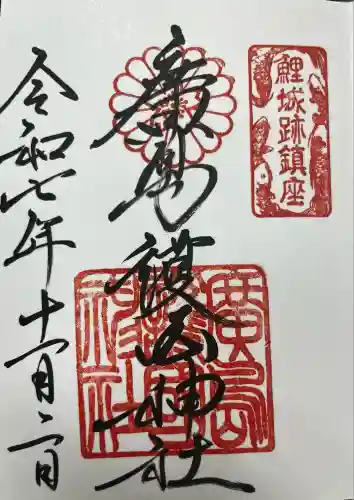 鯉城跡鎮座
廣島護國神社
廣島護國神社
令和七年十一月二日